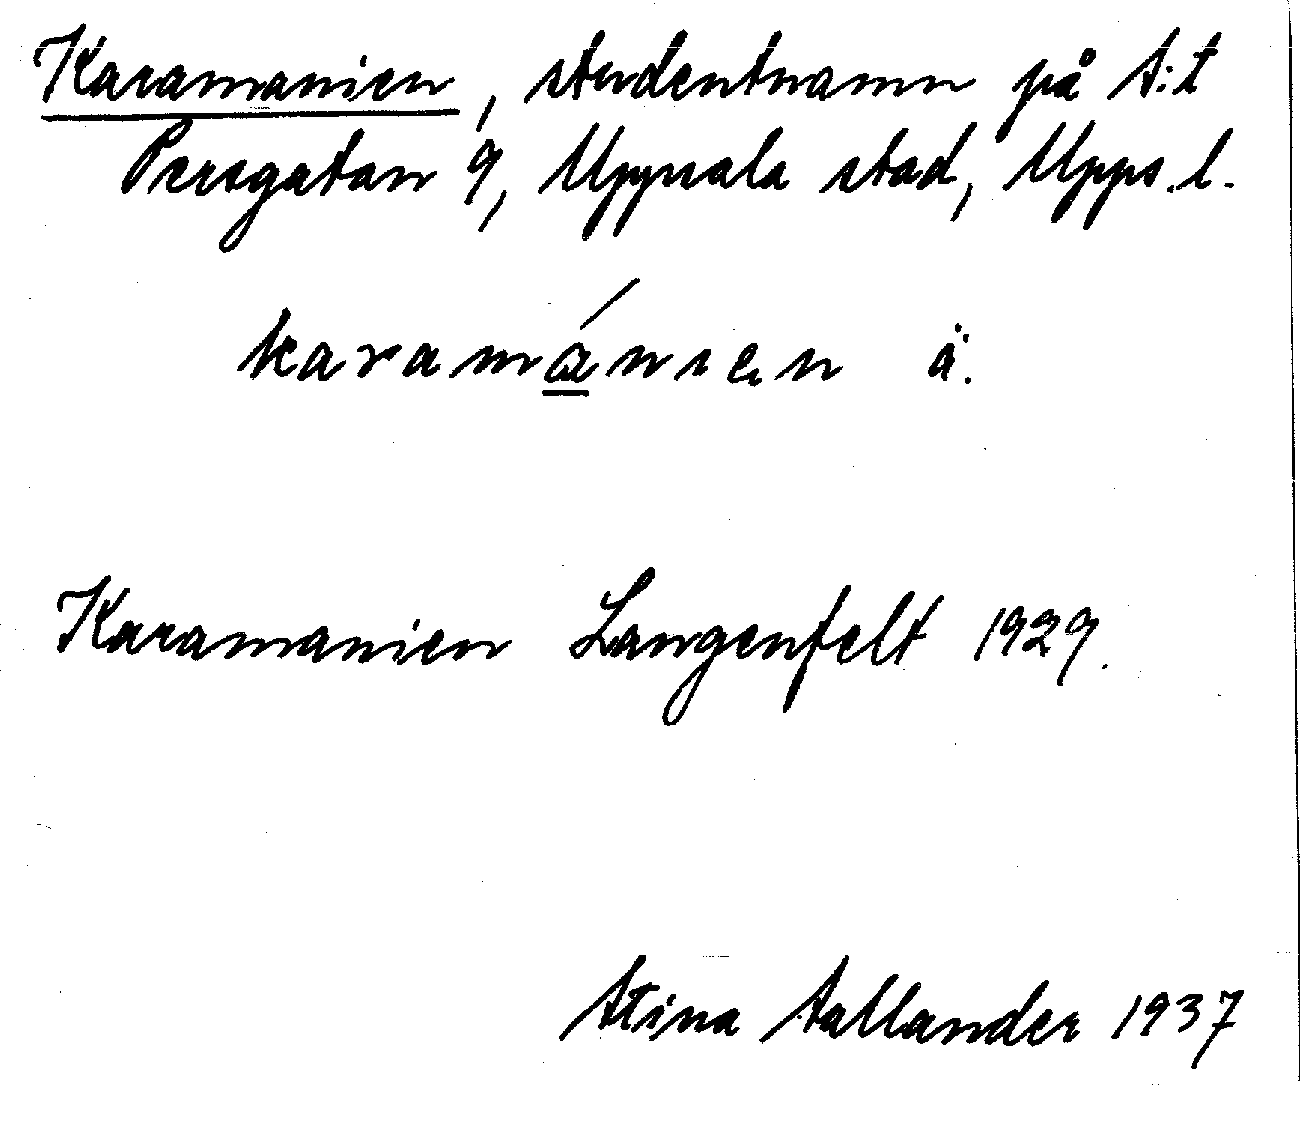 Karamanien, studentnamn på S:t
Persgatan 9, Uppsala stad, Upps. l.
karamánien ä.
Karamanien Langenfelt 1929.
Stina Sallander 1937